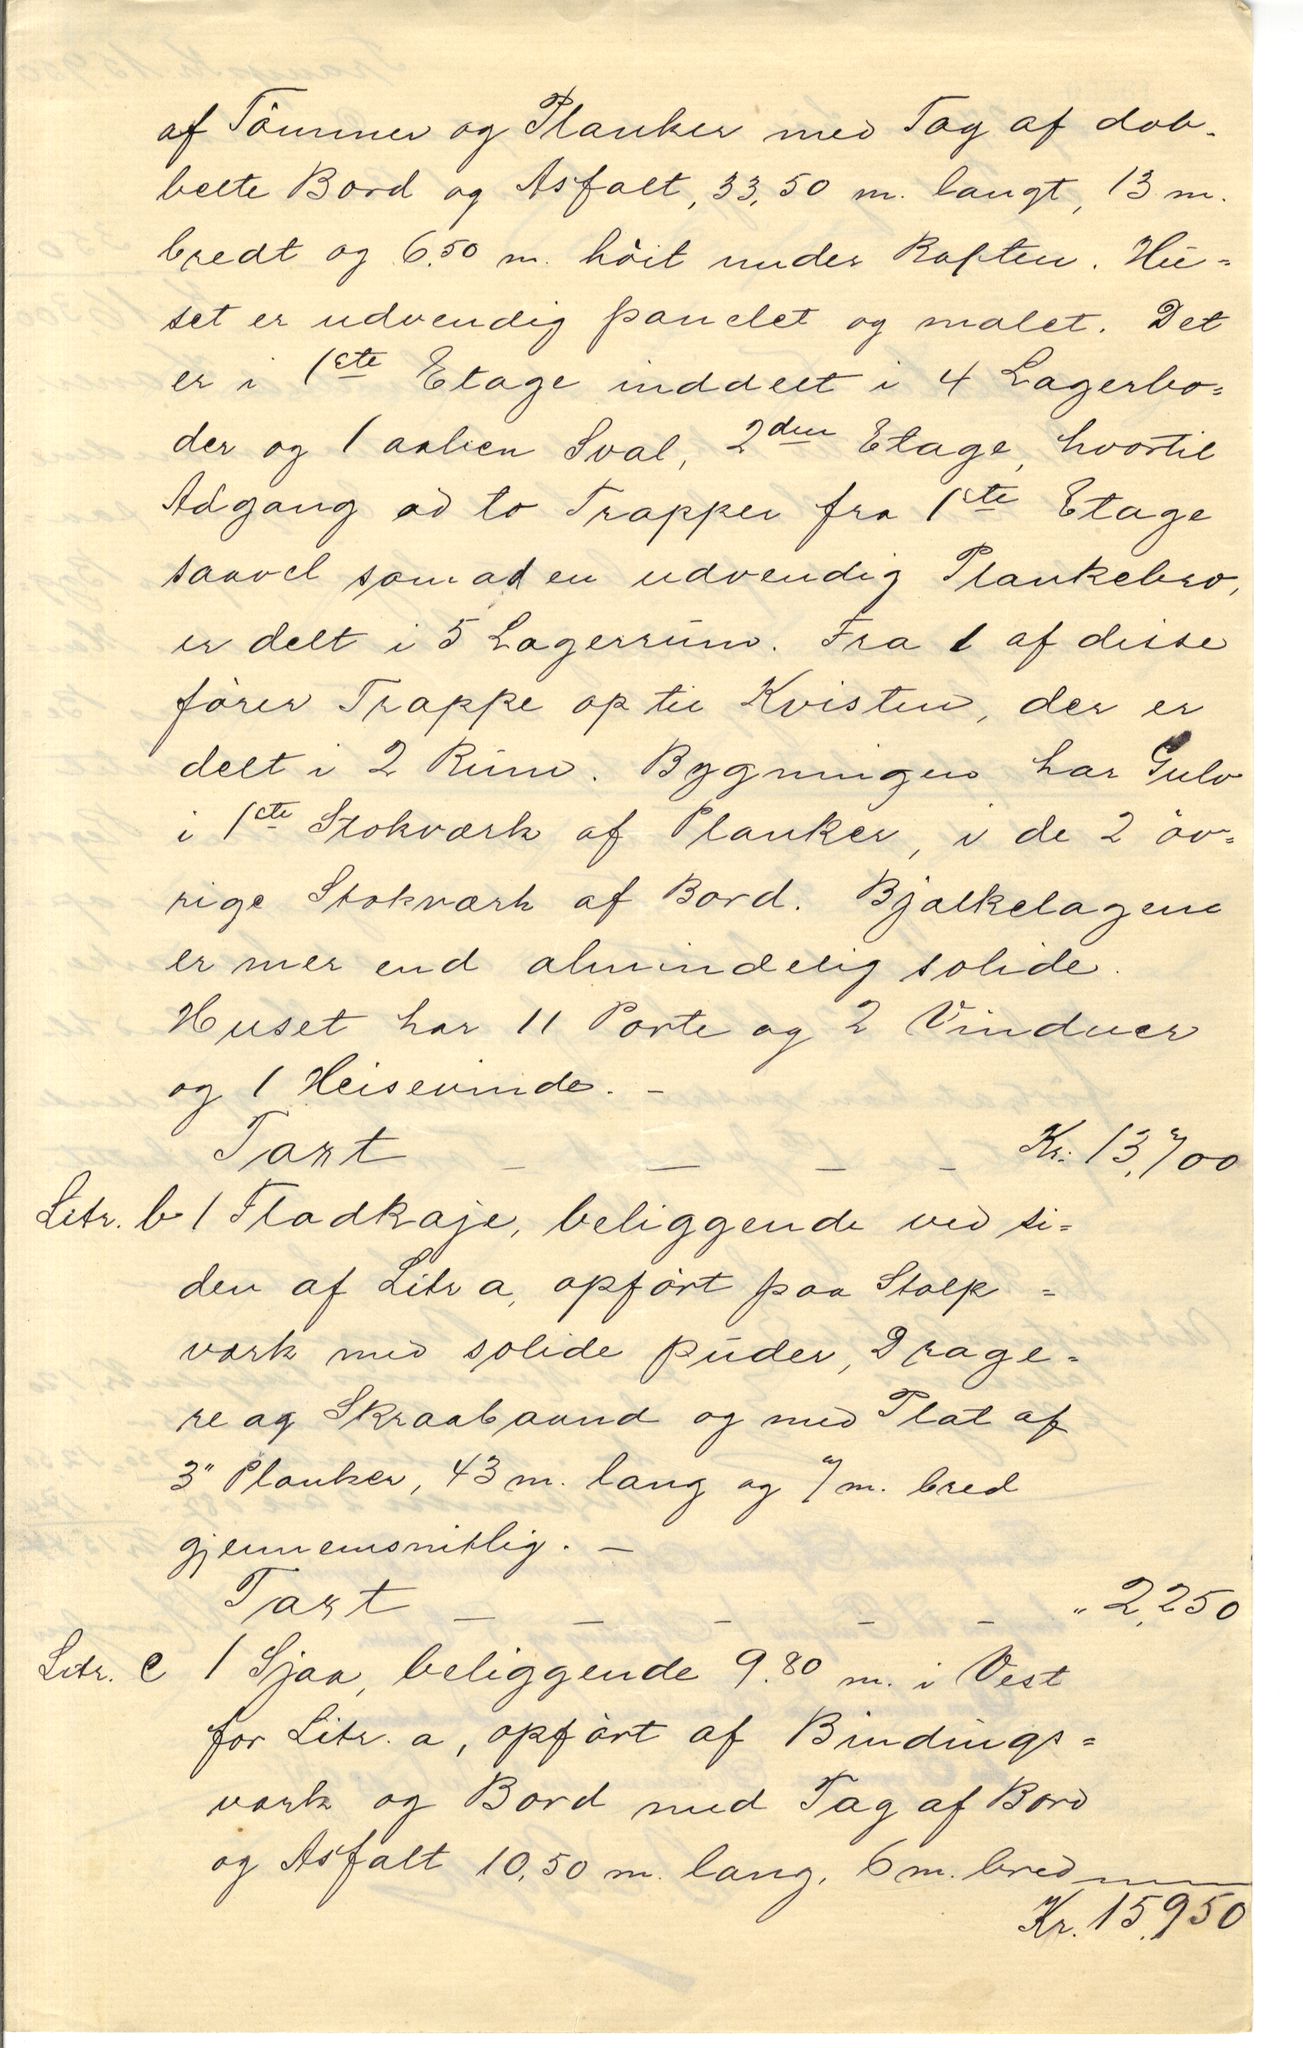 af Tömmer og Planker med Tag af dob-
belte Bord og Asfalt, 33,50 m. langt, 13 m.
bredt og 6.50 m. höit under Raften. Hu-
set er udvendig panelet og malet. Det
er i 1ste Etage inddelt i 4 Lagerbo-
der og 1 aaben Sval, 2den Etage, hvortil
Adgang ad to Trapper fra 1ste Etage
saavel som ad en udvendig Plankebro,
er delt i 5 Lagerrum. Fra 1 af disse
förer Trappe op til Kvisten, der er
delt i 2 Rum. Bygningen har Gulv
i 1ste Stokværk af Planker, i de 2 öv-
rige Stokværk af Bord. Bjælkelagene
er mer end almindelig solide.
Huset har 11 Porte og 2 Vinduer
og 1 Heisevinde. -
Taxt - - - - Kr. 13,700
Litr. b 1 Fladkaje, beliggende ved si-
den af Litr a, opfört paa Stolp-
værk med solide puder, Drage-
re og Skraabaand og med Plat af
3" Planker, 43 m. lang og 7 m. bred
gjennemsnitlig. -
Taxt - - - - - " 2,250
Litr. c 1 Sjaa, beliggende 9.80 m. i Vest
for Litr. a, opfört af Bindings-
værk og Bord med Tag af Bord
og Asfalt 10,50 m. lang, 6 m. bred
Kr. 15,950